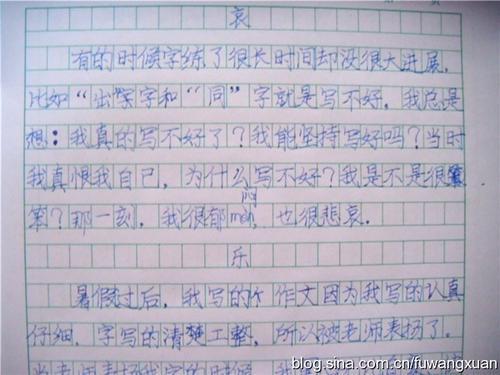 哀
有的时候字练了很长时间却没很大进展，
比如“出”字和“同”字就是写不好。我总是
想：我真的写不好了？我能坚持写好吗？当时
我真恨我自己，为什么写不好？我是不是很
笨？那一刻，我很郁闷mèn，也很悲哀。
乐
暑假过后，我写的个作文因为我写的认真
仔细，字写的清楚工整，所以被老师表扬了。
当老师表扬我字的时候
blog.sina.com.cn/fuwangxuan